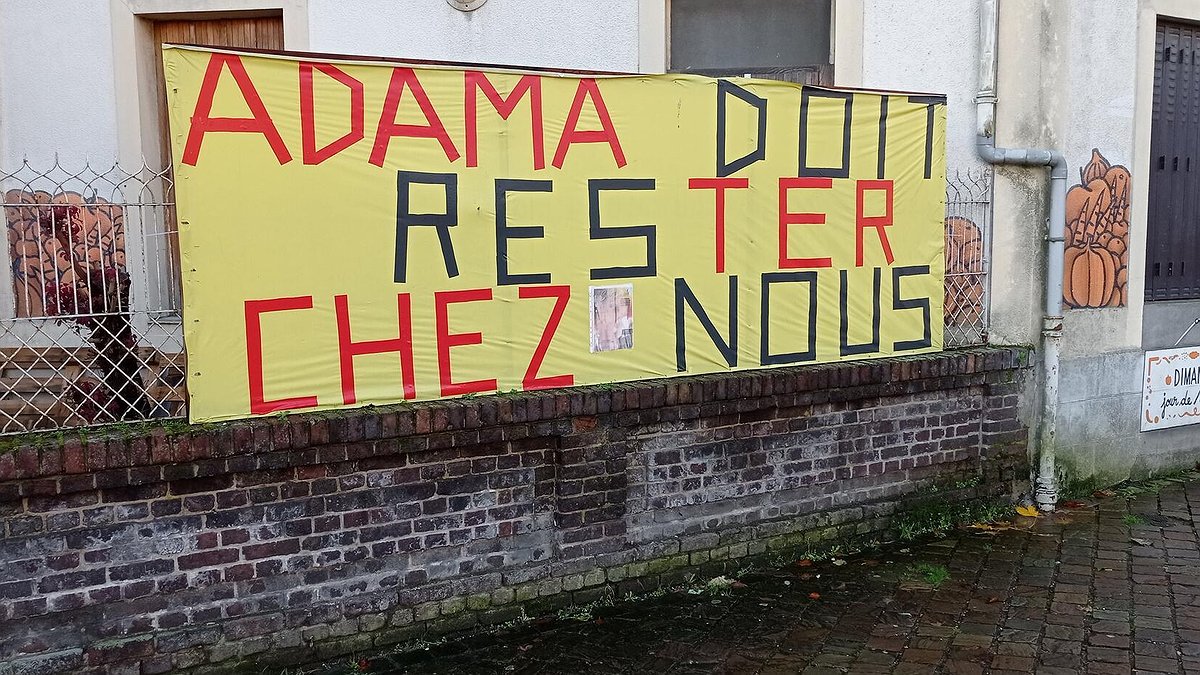 ADAMA DOIT
RESTER
CHEZ NOUS
DIMAN
jour de